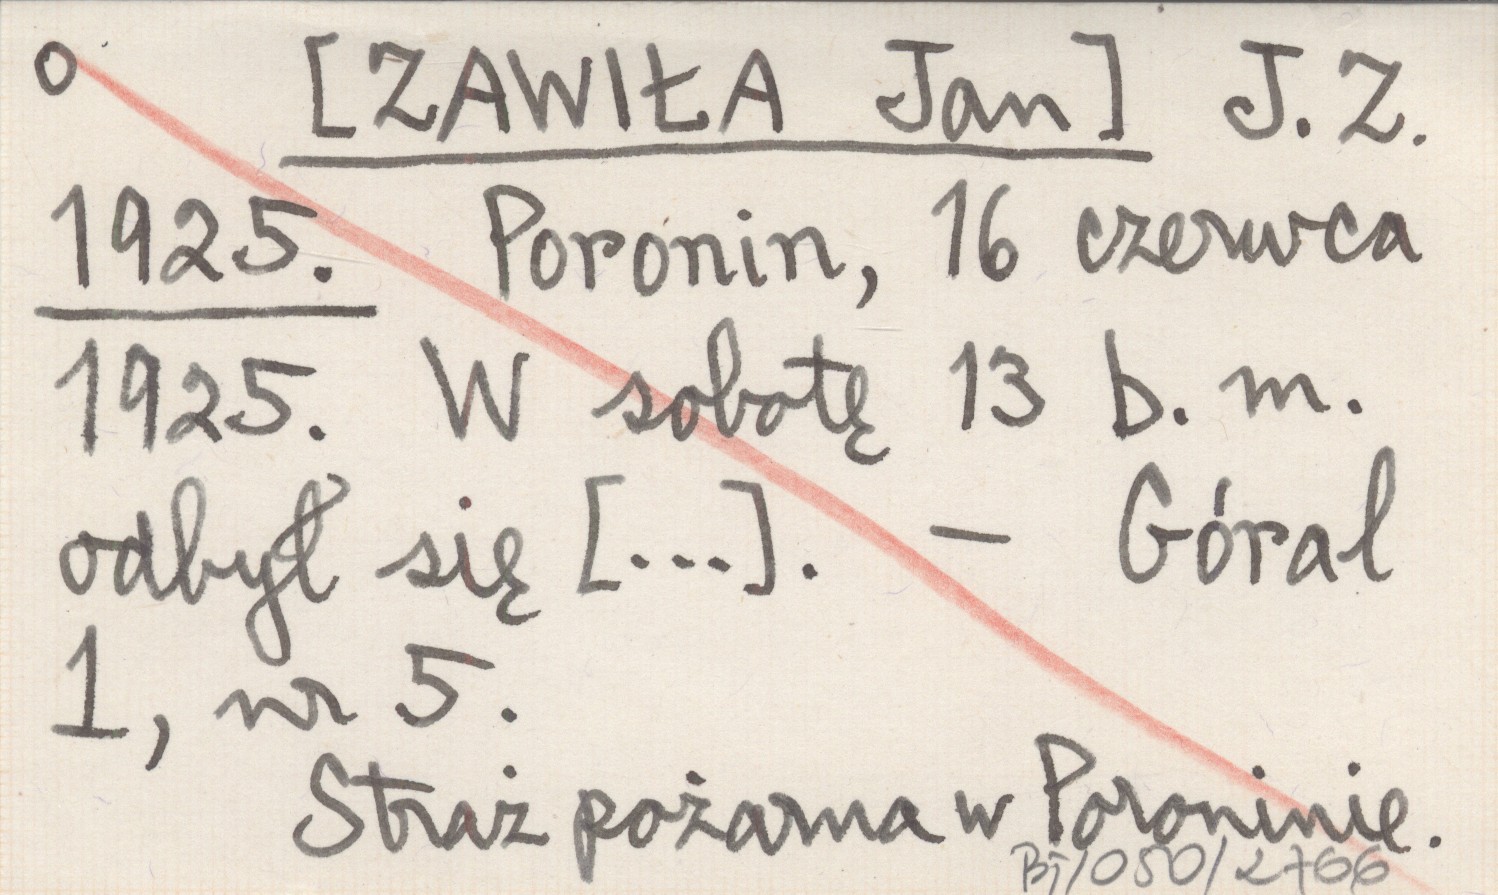 o [ZAWIŁA Jan] J. Z.
1925. Poronin, 16 czerwca
1925. W sobotę 13 b. m.
odbył się [...]. — Góral
1, nr 5.
Straż pożarna w Poroninie.
BJ/050/2766